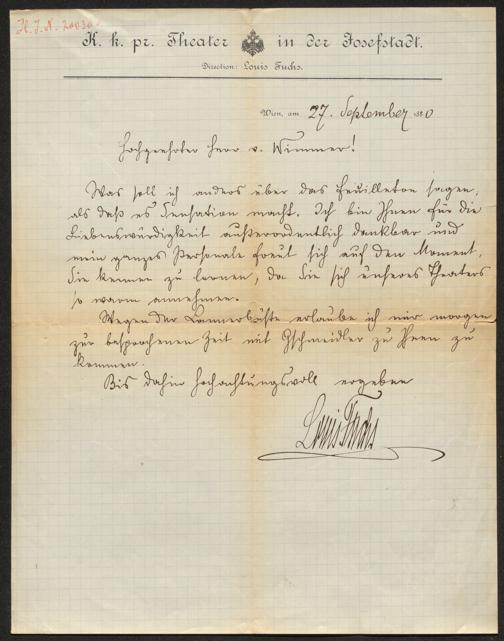 H. I. N.
K. k. pr. Theater in der Josefstadt.
Direction: Louis Fuchs.
Wien, am 27. September 1880
Hochgeehrter Herr v. Wimmer!
Was soll ich anders über das Feuilleton sagen,
als daß es Sensation macht. Ich bin Ihnen für die
Liebenswürdigkeit außerordentlich dankbar und
mein ganzes Personale freut sich auf den Moment,
Sie kennen zu lernen, da Sie sich unseres Theaters
so warm annehmen.
Wegen der Lannerbüste erlaube ich mir morgen
zur besprochenen Zeit mit Gschmeidler zu Ihnen zu
kommen.
Bis dahin hochachtungsvoll ergeben
Louis Fuchs